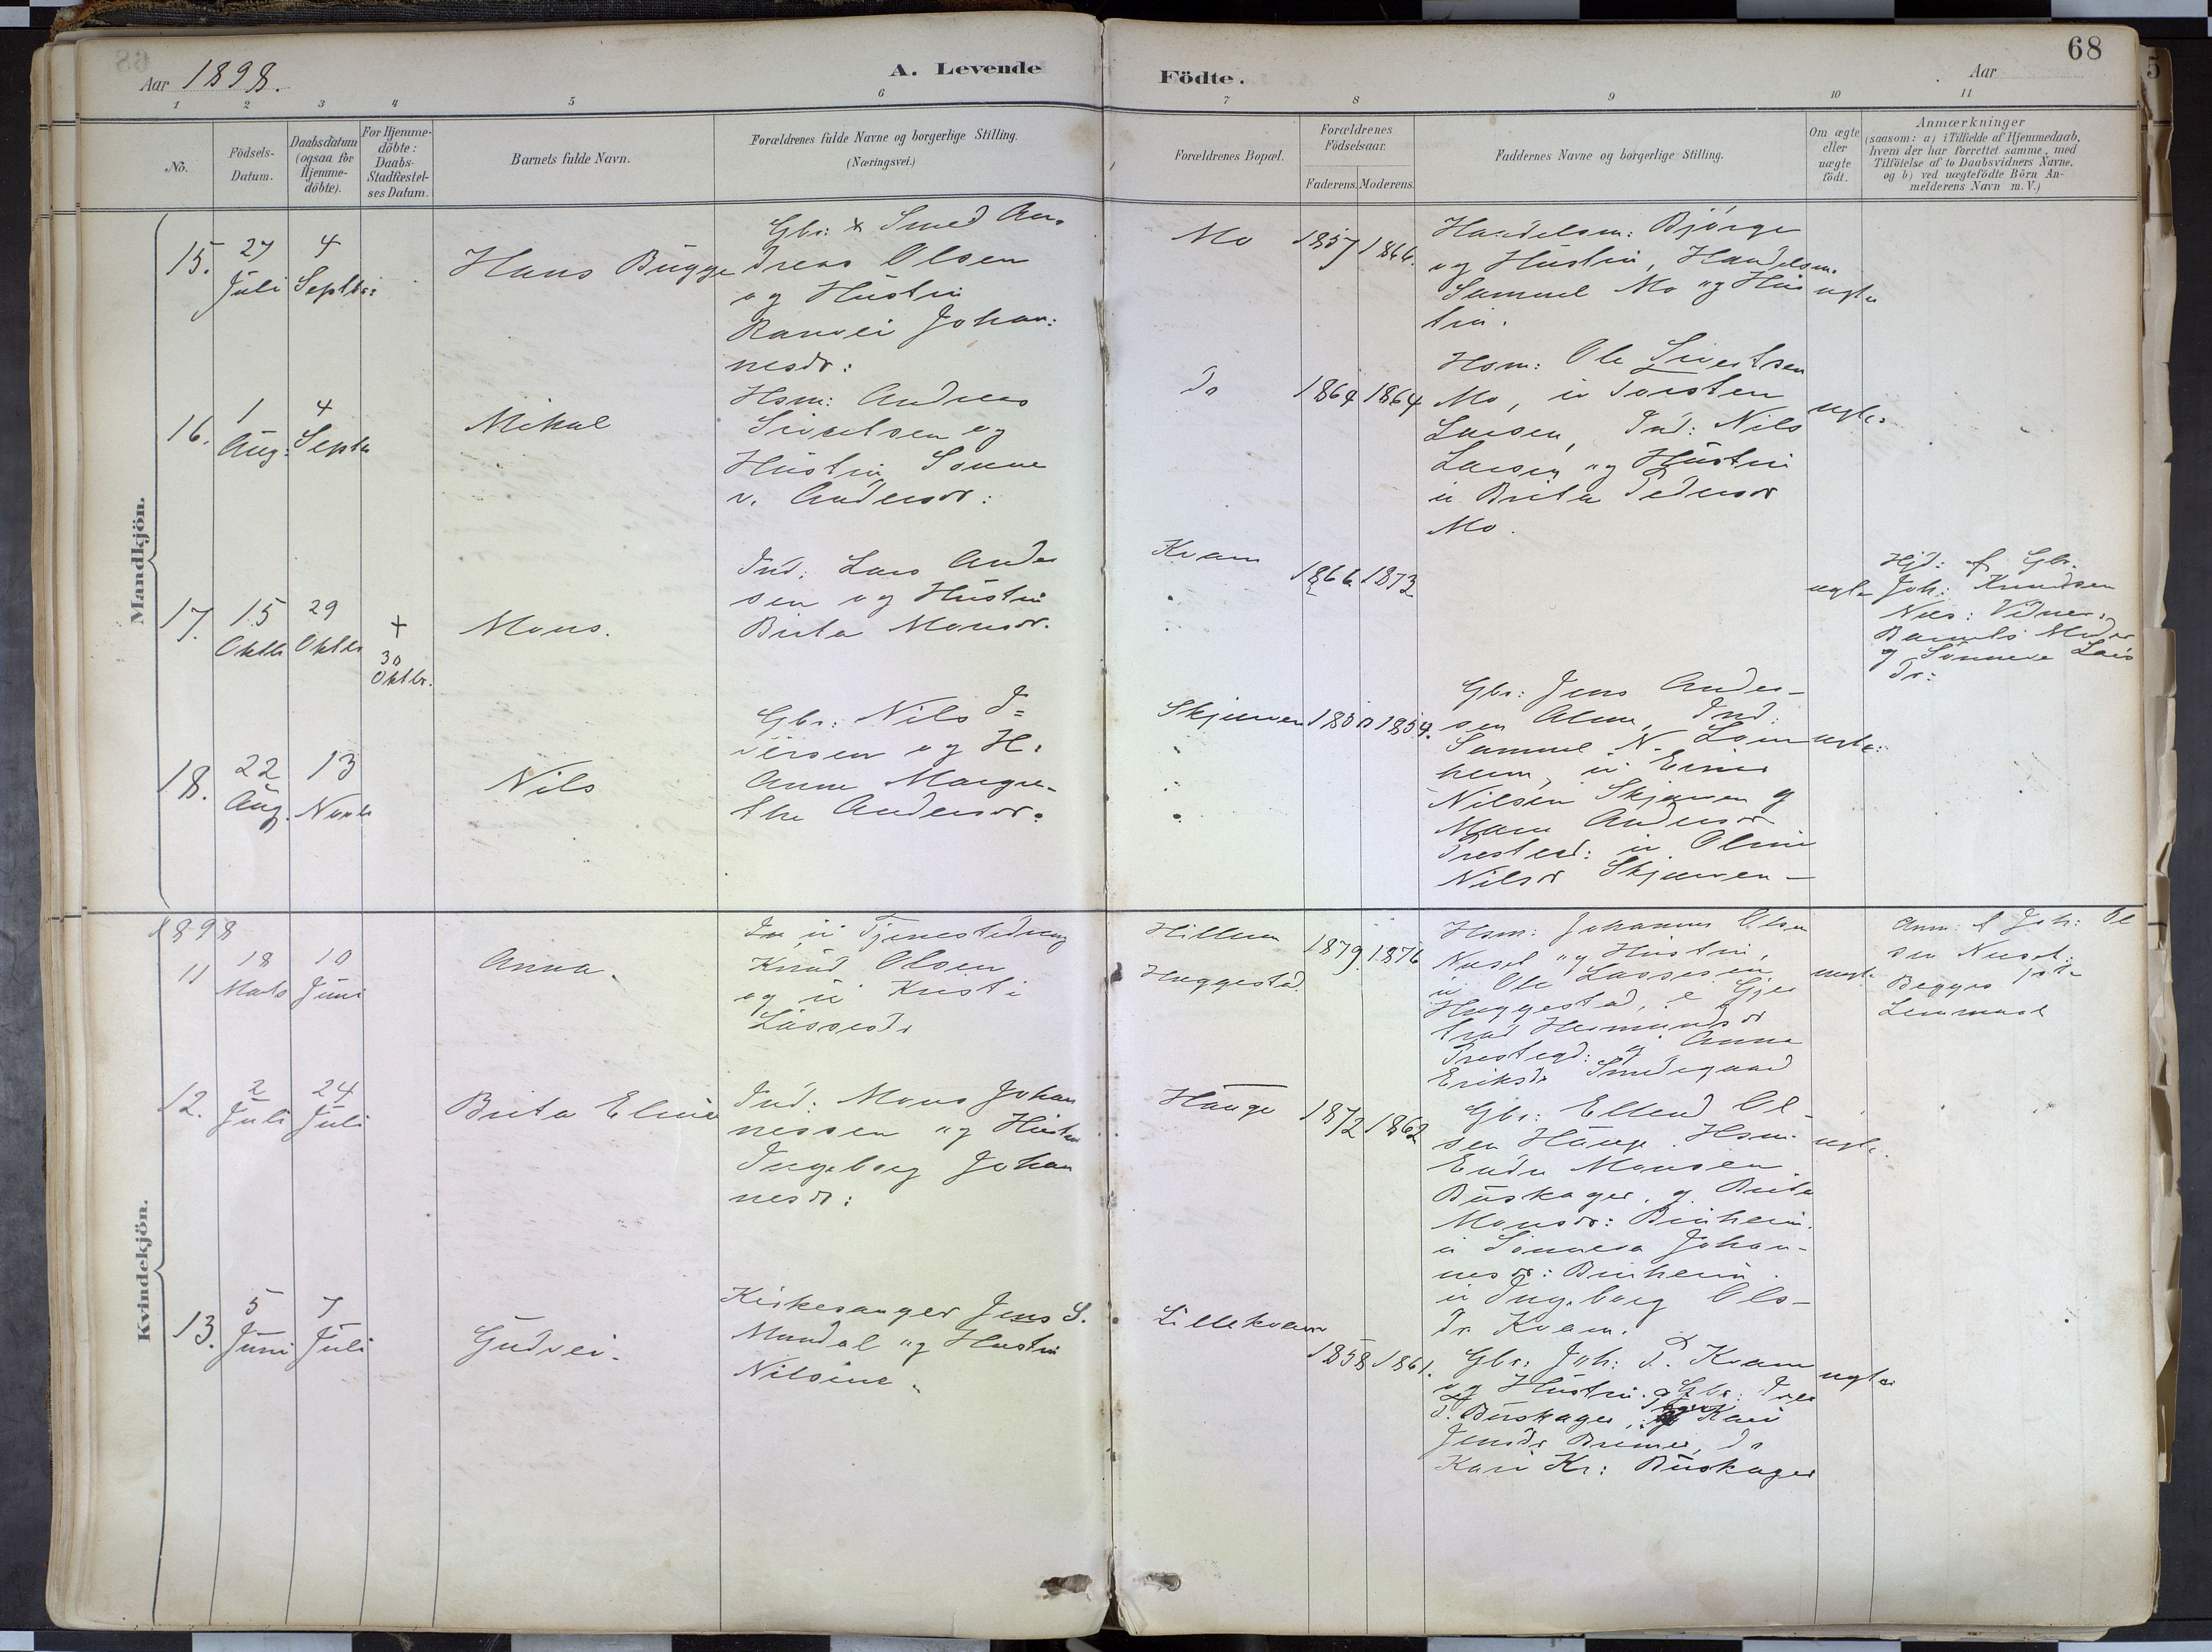 68
Aar 1898.
A. Levende
Födte.
Aar
1 2 3 4 5 6 7 8 9 10 11
No.
Födsels-
Datum.
Daabsdatum
(ogsaa for
Hjemme-
döbte).
For Hjemme-
döbte:
Daabs-
Stadfæstel-
ses Datum.
Barnets fulde Navn.
Forældrenes fulde Navne og borgerlige Stilling.
(Næringsvei.)
Forældrenes Bopæl.
Forældrenes
Födselsaar.
Faderens. Moderens.
Faddernes Navne og borgerlige Stilling.
Om ægte
eller
uægte
födt.
Anmærkninger
(saasom: a) i Tilfælde af Hjemmedaab,
hvem der har forrettet samme, med
Tilföielse af to Daabsvidners Navne.
og b) ved uægtefödte Börn An-
melderens Navn m. V.)
Mandkjön.
15.
27
Juli
4
Septbr:
Hans Bugge
Gbr: & Smed An-
dreas Olsen
og Hustru
Ranvei Johan:
nesdr:
Mo
1857 1866.
Handelsm: Bjørge
og Hustru, Handelsm.
Samuel Mo og Hus
tru.
ægte
16.
1
Aug:
4
Septbr
Mikal
Hsm: Andreas
Sivertsen og
Hustru Sønne
v. Andersdr:
Do
1864 1864
Hsm: Ole Sivertsen
Mo, u Torsten
Larsen, Ind: Nils
Larsen og Hustru
u Brita Pedersdr
Mo.
ægte
17.
15
Oktbr
29
Oktbr
+
30
Oktbr.
Mons.
Ind: Lars Ander
sen og Hustru
Brita Monsdr.
Kvam
1866 1873
ægte
Hjd: af Gbr.
Joh: Knudsen
Næs: Vidner:
Barnets Moder
og Sønneva Lars
dr:
18.
22
Aug.
13
Novbr
Nils
Gbr: Nils I=
versen og H.
Anne Margre-
the Andersdr.
Skjærven
1850 1854.
Gbr: Jens Ander-
sen Alme, Ind:
Samuel N. Lom
heim, u Einar
Nilsen Skjærven og
Mare Andersdr
Prestegd: u Oline
Nilsdr Skjærven -
ægte:
Kvindekjön.
1898
11
18
Marts
10
Juni
Anna.
u Tjenestedreng
Knud Olsen
og u Kristi
Lassesdr
Hillum
Huggestad.
1879. 1876
Hsm: Johannes Olsen
Nuset og Hustru,
u Ole Lassesen
Huggestad, e Gjer
trud Hermundsdr
Prestegd: og Anna
Eriksdr Smedegaard
uægte
Anm: af Joh: Ol
sen Nuset:
Begges 1ste
Leiermaal
12.
2
Juli
24
Juli
Brita Eline
Ind: Mons Johan
nessen og Hustru
Ingeborg Johan
nesdr:
Hauge
1872 1862
Gbr: Ellend Ol-
sen Hauge. Hsm:
Endre Monsen
Buskager. g. Brita
Monsdr: Binheim.
u Sønneva Johan-
nesdr: Binheim.
u Ingeborg Ols-
dr Kvam.
ægte.
13.
5
Juni
7
Juli
Gudvei.
Kirkesanger Jens S.
Mundal og Hustru
Nilsine.
Lillekvam
1858 1861.
Gbr: Joh: P. Kvam
og Hustru. Gbr:
Buskager, Kari
Jensdr Bremer, do
Kari Kr: Buskager
ægte